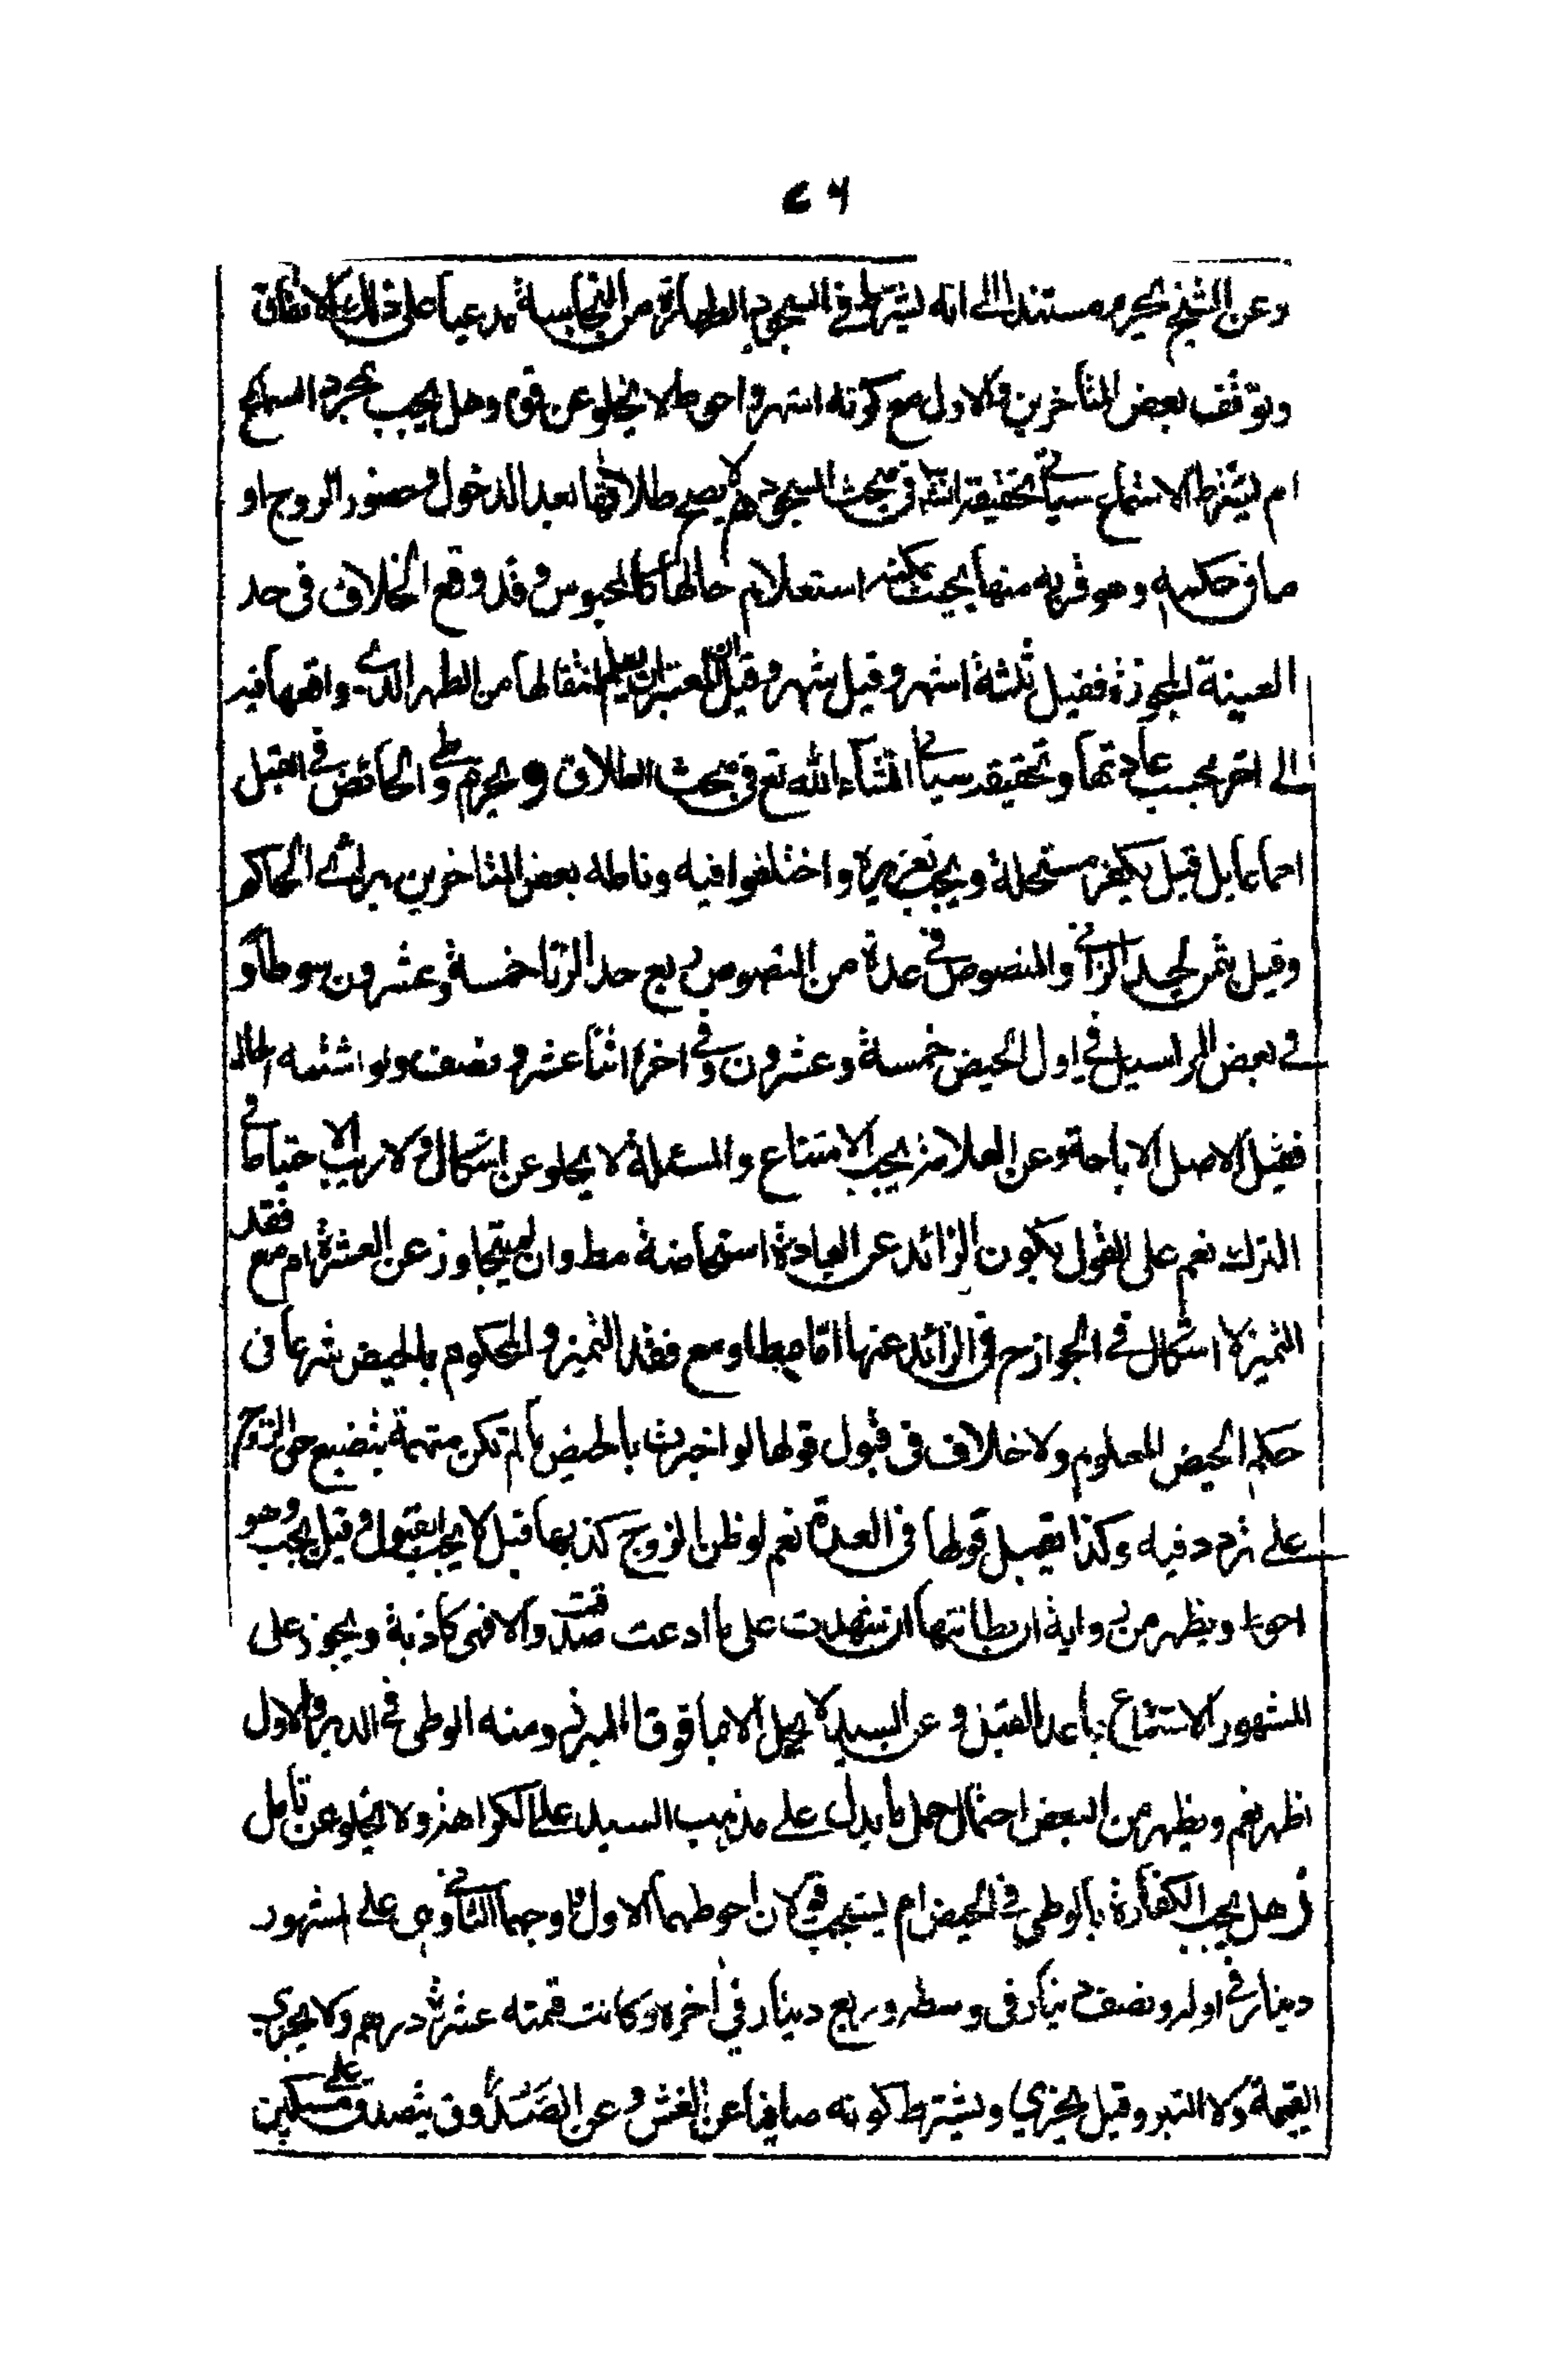 ٤٦
وعن الشيخ يحرم مستندا الى انه يشترط في السجود الطهارة من النجاسة مدعيا على ذلك الاتفاق
وتوقف بعض المتأخرين والاول مع كونه اشهر واحوط لا يخلو عن قوة وهل يجب بمجرد السماع
ام يشترط الاستماع سيأتي تحقيقه انشا في مبحث السجود لا يصح طلاقها بعد الدخول وحضور الزوج او
ما في حكمه وهو قربه منها بحيث يمكنه استعلام حالها كالمحبوس وقد وقع الخلاف في حد
الغيبة المجوزة فقيل ثلثة اشهر وقيل شهر وقيل المعتبر ان يعلم انتقالها من الطهر الذي واقعها فيه
الى اخر بحسب عادتها وتحقيقه سيأتي انشاء الله تع في مبحث الطلاق ويحرم وطي الحائض في القبل
اجماعا بل قيل يكفر مستحله ويجب تعزيره واختلفوا فيه وناطه بعض المتاخرين براي الحاكم
وقيل ثمن لحد الزاني والمنصوص في عدة من النصوص ربع حد الزنا خمسة وعشرون سوطا و
في بعض المراسيل في اول الحيض خمسة وعشرون وفي اخره اثنا عشر ونصف ولو اشتبه الحال
فقيل الاصل الاباحة وعن العلامة يجب الامتناع والمسئلة لا يخلو عن اشكال ولا ريب الاحتياط في
الترك نعم على القول بكون الزائد عن العادة استحاضة مط وان لم يتجاوز عن العشرة ام مع فقد
التميز لا اشكال في الجواز ح في الزائد عنها اما مطا ومع فقد التميز والمحكوم بالحيض شرعا في
حكم الحيض المعلوم ولا خلاف في قبول قولها لو اخبرت بالحيض ما لم تكن متهمة بتضييع حق الزوج
على تردد فيه وكذا يقبل قولها في العدة نعم لو ظن الزوج كذبها قيل لا يجب القبول وقيل يجب وهو
احوط ويظهر من رواية ان بطانتها ان شهدت على ما ادعت صدقت والا فهي كاذبة ويجوز على
المشهور الاستمتاع بما عدا القبل وعن السيد لا يحل الا بما فوق المئزر ومنه الوطي في الدبر والاول
اظهر نعم ويظهر من البعض احتمال حمل ما يدل على مذهب السيد على الكراهة ولا يخلو عن تأمل
وهل يجب الكفارة بالوطي في الحيض ام يستحب قولان احوطهما الاول واوجههما الثاني وهي على المشهور
دينار في اوله ونصف دينار في وسطه وربع دينار في اخره وكانت قيمته عشرة دراهم ولا يجزي
القيمة ولا التبر وقيل يجزي ويشترط كونه صافيا عن الغش وعن الصدوق يتصدق على مسكين